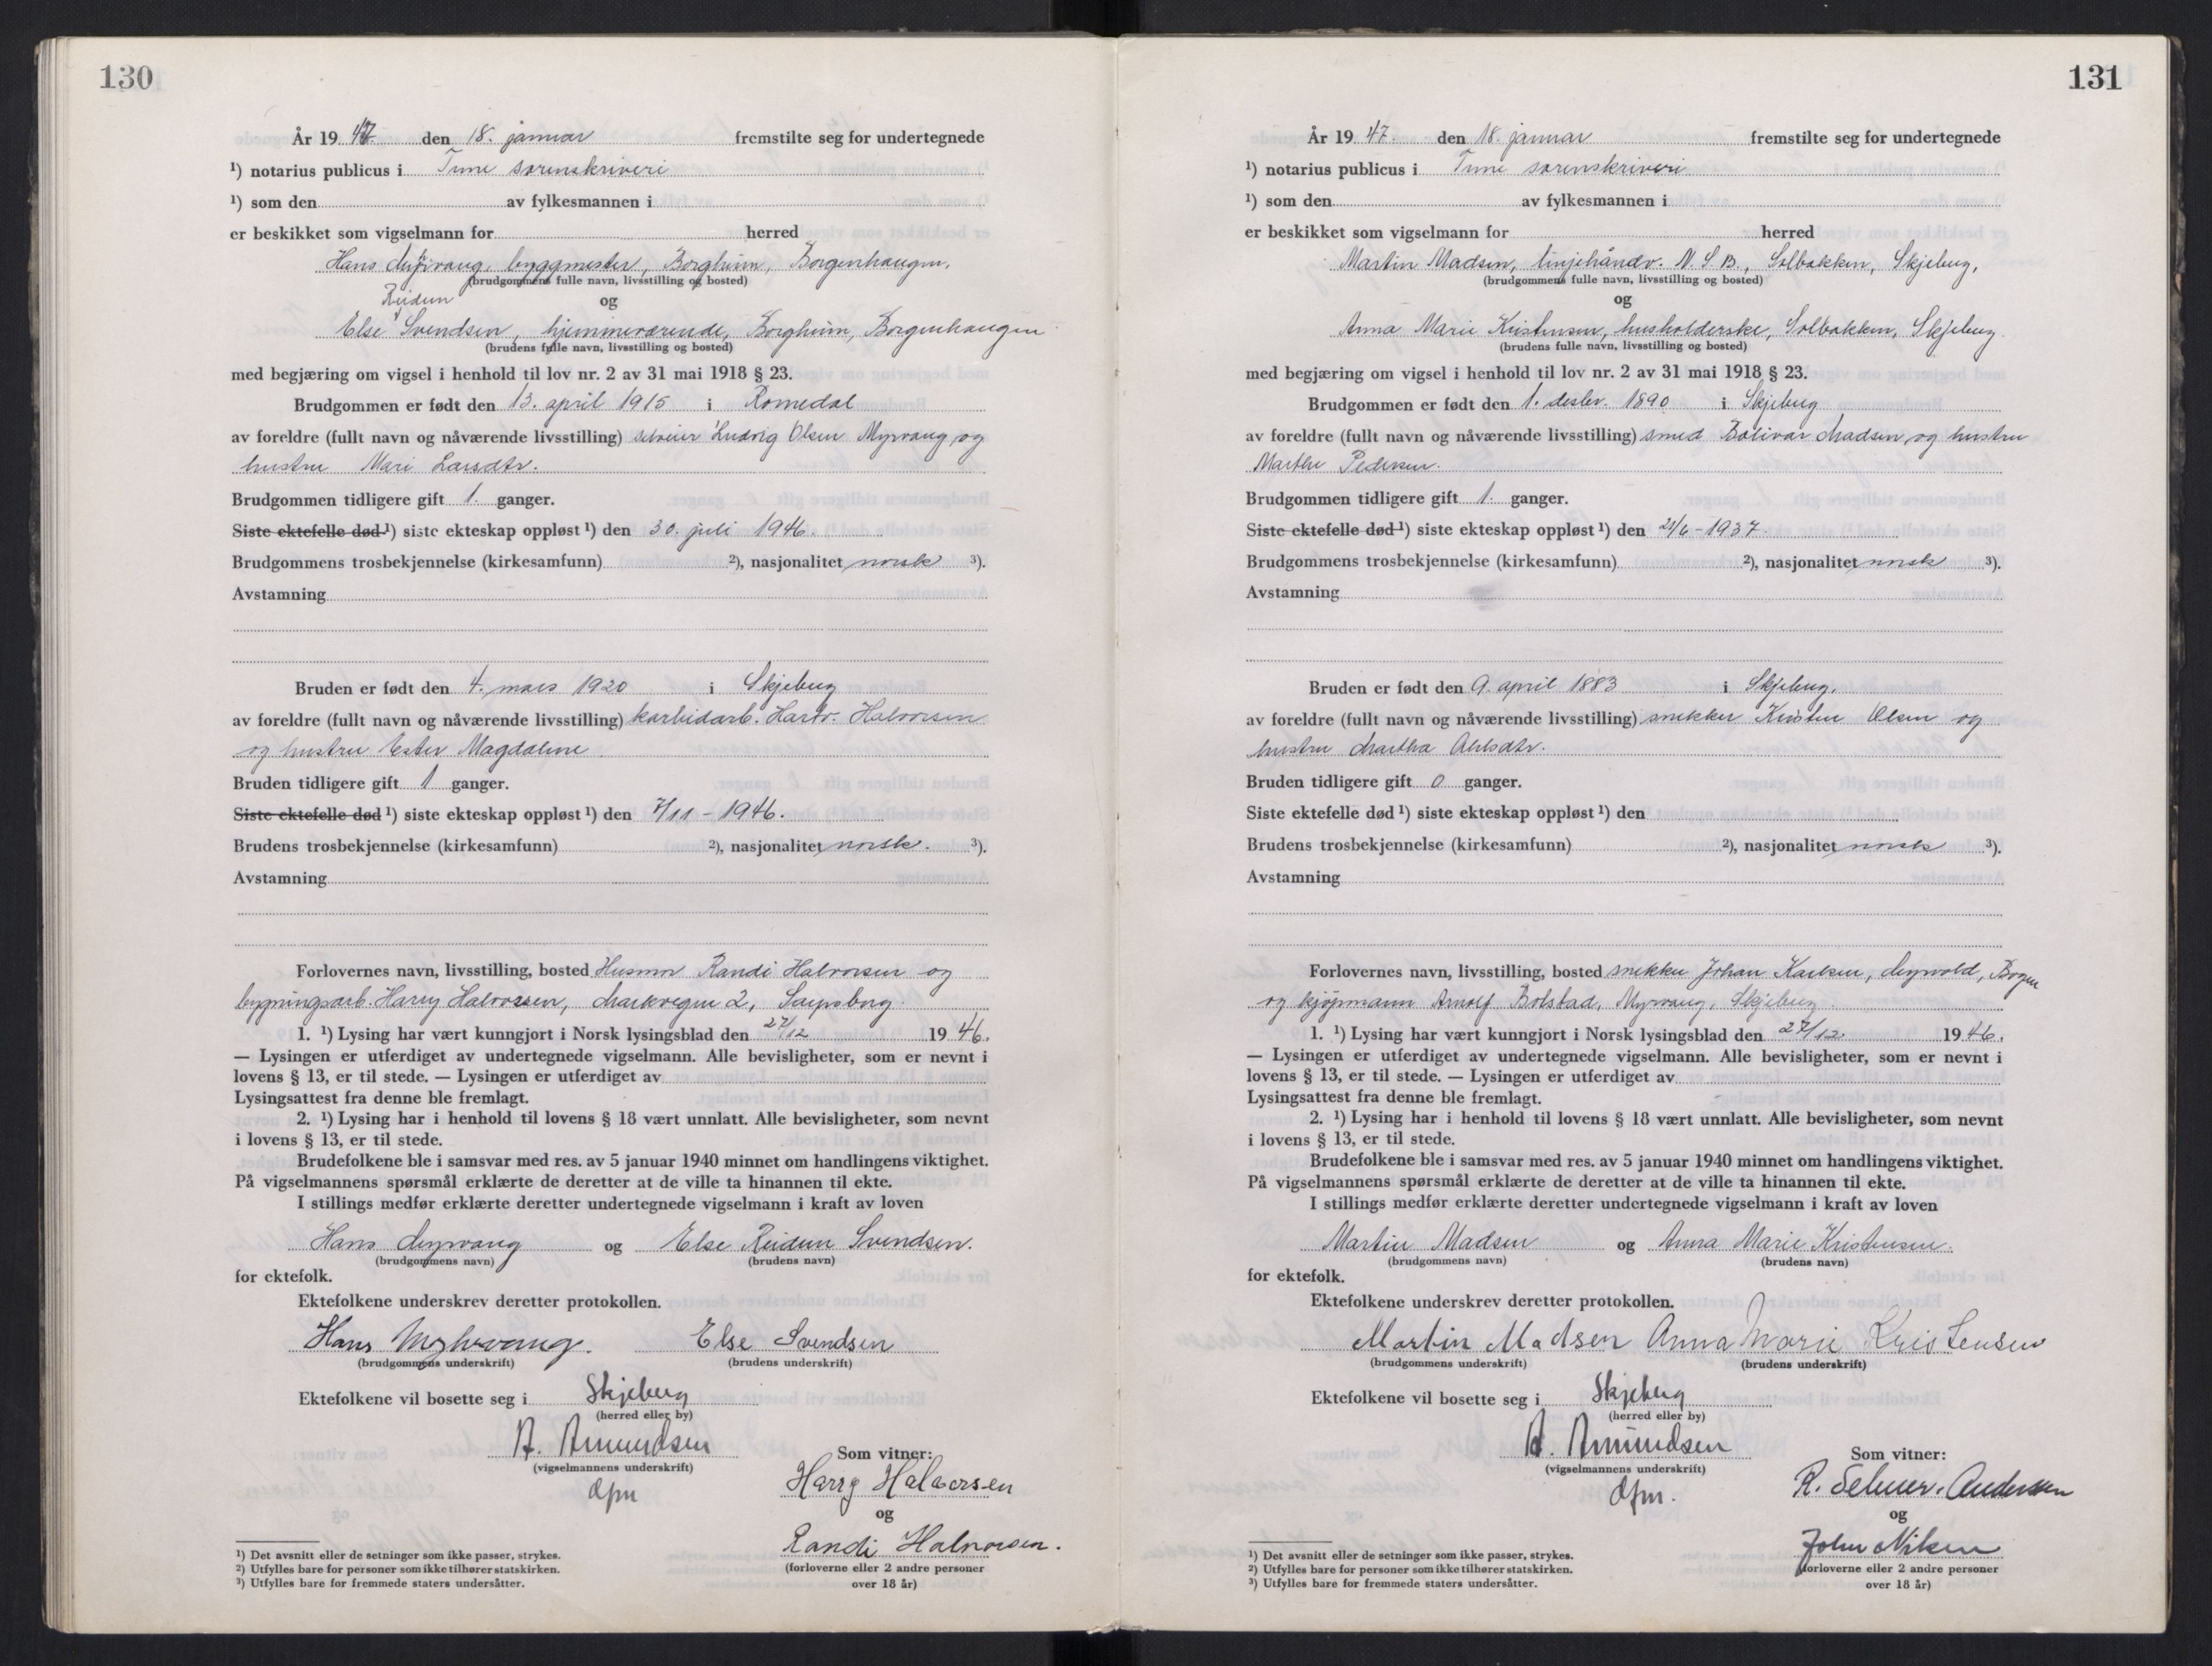 130
År 19 47. den 18. januar fremstilte seg for undertegnede
¹) notarius publicus i Tune sorenskriveri
¹) som den av fylkesmannen i
er beskikket som vigselmann for herred
Hans Myrvang, byggmester, Borgheim, Borgenhaugen,
(brudgommens fulle navn, livsstilling og bosted)
Reidun og
Else Svendsen, hjemmeværende, Borgheim, Borgenhaugen
(brudens fulle navn, livsstilling og bosted)
med begjæring om vigsel i henhold til lov nr. 2 av 31 mai 1918 § 23.
Brudgommen er født den 13. april 1915 i Romedal
av foreldre (fullt navn og nåværende livsstilling) selveier Ludvig Olsen Myrvang og
hustru Mari Larsdtr.
Brudgommen tidligere gift 1. ganger.
Siste ektefelle død ¹) siste ekteskap oppløst ¹) den 30. juli 1946.
Brudgommens trosbekjennelse (kirkesamfunn) ²), nasjonalitet norsk ³).
Avstamning
Bruden er født den 4. mars 1920 i Skjeberg
av foreldre (fullt navn og nåværende livsstilling) karbidarb. Hartv. Halvorsen
og hustru Ester Magdalene
Bruden tidligere gift 1 ganger.
Siste ektefelle død ¹) siste ekteskap oppløst ¹) den 7/11 - 1946.
Brudens trosbekjennelse (kirkesamfunn) ²), nasjonalitet norsk. ³).
Avstamning
Forlovernes navn, livsstilling, bosted Husmor Randi Halvorsen og
bygningsarb. Harry Halvorsen, Markvegen 2, Sarpsborg.
1. ¹) Lysing har vært kunngjort i Norsk lysingsblad den 27/12 19 46.
— Lysingen er utferdiget av undertegnede vigselmann. Alle bevisligheter, som er nevnt i
lovens § 13, er til stede. — Lysingen er utferdiget av
Lysingsattest fra denne ble fremlagt.
2. ¹) Lysing har i henhold til lovens § 18 vært unnlatt. Alle bevisligheter, som nevnt
i lovens § 13, er til stede.
Brudefolkene ble i samsvar med res. av 5 januar 1940 minnet om handlingens viktighet.
På vigselmannens spørsmål erklærte de deretter at de ville ta hinannen til ekte.
I stillings medfør erklærte deretter undertegnede vigselmann i kraft av loven
Hans Myrvang og Else Reidun Svendsen.
(brudgommens navn) (brudens navn)
for ektefolk.
Ektefolkene underskrev deretter protokollen.
Hans Myhrvang. Else Svendsen
(brudgommens underskrift) (brudens underskrift)
Ektefolkene vil bosette seg i Skjeberg
(herred eller by)
A. Amundsen
(vigselmannens underskrift)
Som vitner:
Harry Halvorsen
og
Randi Halvorsen.
(forloverne eller 2 andre personer
over 18 år)
¹) Det avsnitt eller de setninger som ikke passer, strykes.
²) Utfylles bare for personer som ikke tilhører statskirken.
³) Utfylles bare for fremmede staters undersåtter.
131
År 19 47. den 18. januar fremstilte seg for undertegnede
¹) notarius publicus i Tune sorenskriveri
¹) som den av fylkesmannen i
er beskikket som vigselmann for herred
Martin Madsen, linjehåndv. N.S.B., Solbakken, Skjeberg,
(brudgommens fulle navn, livsstilling og bosted)
og
Anna Marie Kristensen, husholderske, Solbakken, Skjeberg.
(brudens fulle navn, livsstilling og bosted)
med begjæring om vigsel i henhold til lov nr. 2 av 31 mai 1918 § 23.
Brudgommen er født den 1. desbr. 1890 i Skjeberg
av foreldre (fullt navn og nåværende livsstilling) smed Bolivar Madsen og hustru
Marthe Pedersen.
Brudgommen tidligere gift 1. ganger.
Siste ektefelle død ¹) siste ekteskap oppløst ¹) den 21/6 - 1937.
Brudgommens trosbekjennelse (kirkesamfunn) ²), nasjonalitet norsk ³).
Avstamning
Bruden er født den 9. april 1883 i Skjeberg.
av foreldre (fullt navn og nåværende livsstilling) snekker Kristen Olsen og
hustru Martha
Bruden tidligere gift 0 ganger.
Siste ektefelle død ¹) siste ekteskap oppløst ¹) den
Brudens trosbekjennelse (kirkesamfunn) ²), nasjonalitet norsk ³).
Avstamning
Forlovernes navn, livsstilling, bosted snekker Johan Karlsen, Myrvold, Borgen
og kjøpmann Arnolf Bolstad, Myrvang, Skjeberg.
1. ¹) Lysing har vært kunngjort i Norsk lysingsblad den 27/12. 19 46.
— Lysingen er utferdiget av undertegnede vigselmann. Alle bevisligheter, som er nevnt i
lovens § 13, er til stede. — Lysingen er utferdiget av
Lysingsattest fra denne ble fremlagt.
2. ¹) Lysing har i henhold til lovens § 18 vært unnlatt. Alle bevisligheter, som nevnt
i lovens § 13, er til stede.
Brudefolkene ble i samsvar med res. av 5 januar 1940 minnet om handlingens viktighet.
På vigselmannens spørsmål erklærte de deretter at de ville ta hinannen til ekte.
I stillings medfør erklærte deretter undertegnede vigselmann i kraft av loven
Martin Madsen og Anna Marie Kristensen.
(brudgommens navn) (brudens navn)
for ektefolk.
Ektefolkene underskrev deretter protokollen.
Martin Madsen Anna Marie Kristensen
(brudgommens underskrift) (brudens underskrift)
Ektefolkene vil bosette seg i Skjeberg
(herred eller by)
A. Amundsen
(vigselmannens underskrift)
Som vitner:
R. Selmer-Andersen
og
John Nilsen
(forloverne eller 2 andre personer
over 18 år)
¹) Det avsnitt eller de setninger som ikke passer, strykes.
²) Utfylles bare for personer som ikke tilhører statskirken.
³) Utfylles bare for fremmede staters undersåtter.